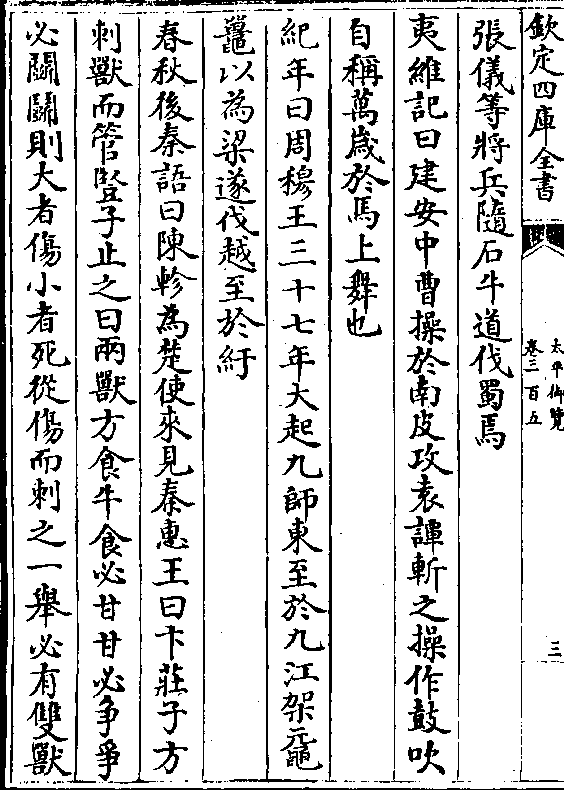 欽定四庫全書
太平御覽
卷三百五
三
張儀等將兵隨石牛道伐蜀焉
夷維記曰建安中曹操於南皮攻袁譚斬之操作鼓吹
自稱萬歲於馬上舞也
紀年曰周穆王三十七年大起九師東至於九江架黿
鼉以為梁遂伐越至於紆
春秋後秦語曰陳軫為楚使來見秦惠王曰卞莊子方
刺獸而管豎子止之曰兩獸方食牛食必甘甘必争爭
必鬭鬭則大者傷小者死從傷而刺之一舉必有雙獸